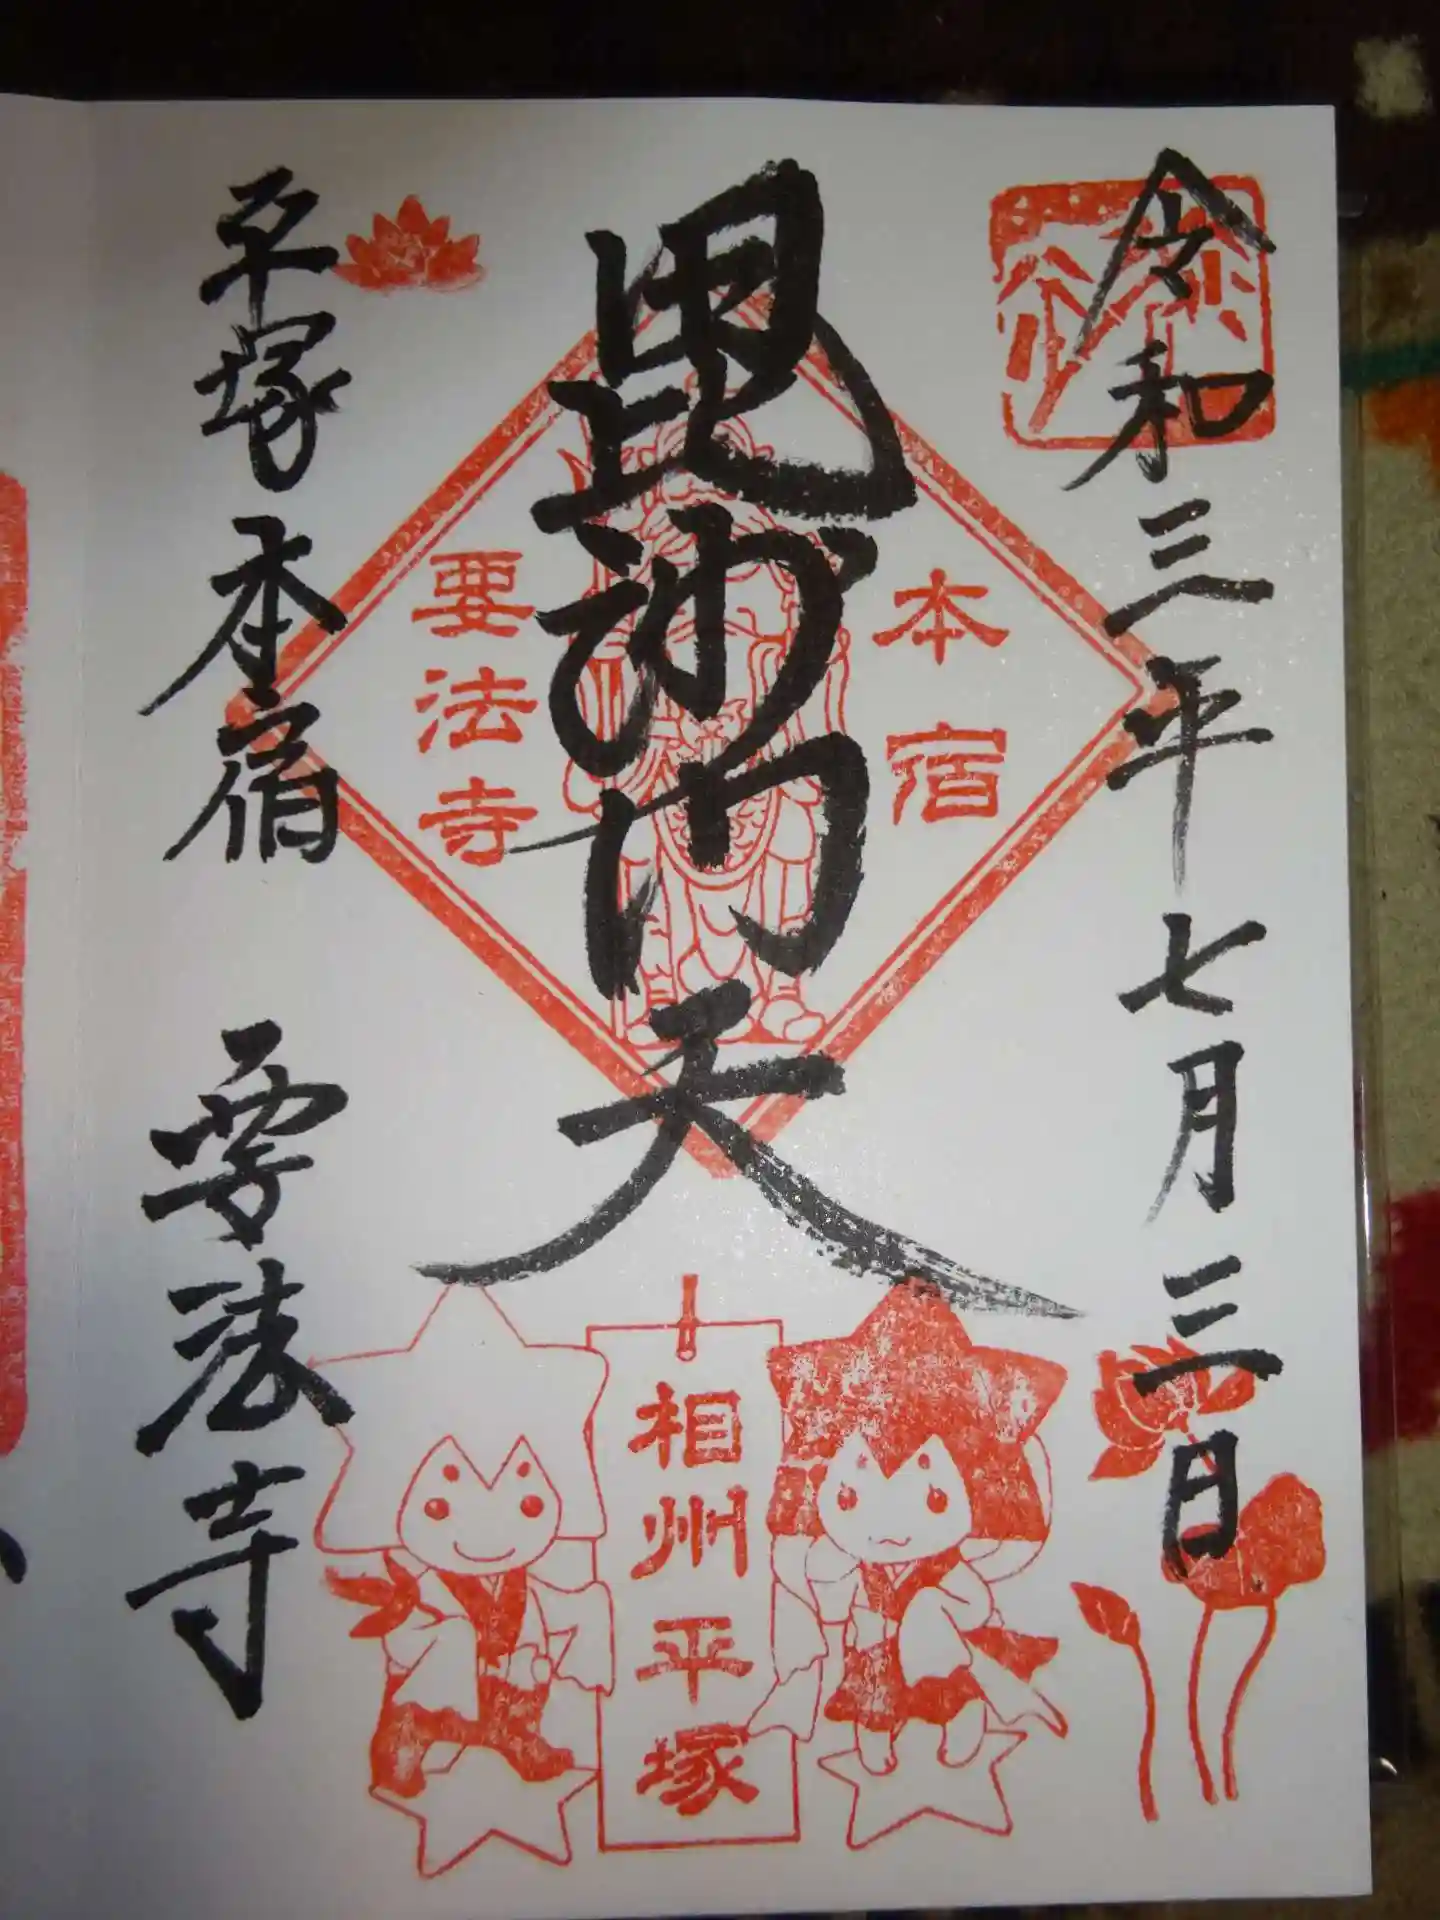 令和三年七月三日
本宿
毘沙門天
要法寺
平塚本宿 要法寺
相州平塚